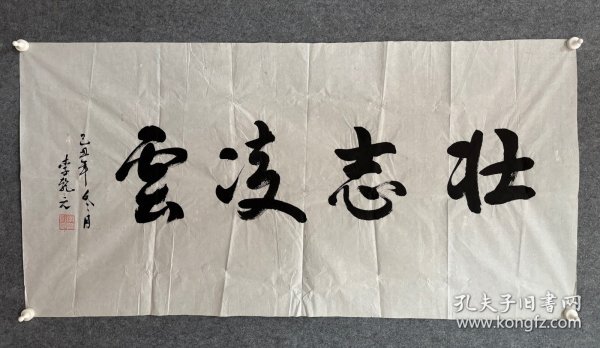 壮志凌雲
己丑年冬月
李乾元
孔夫子旧書网
www.kongfz.com